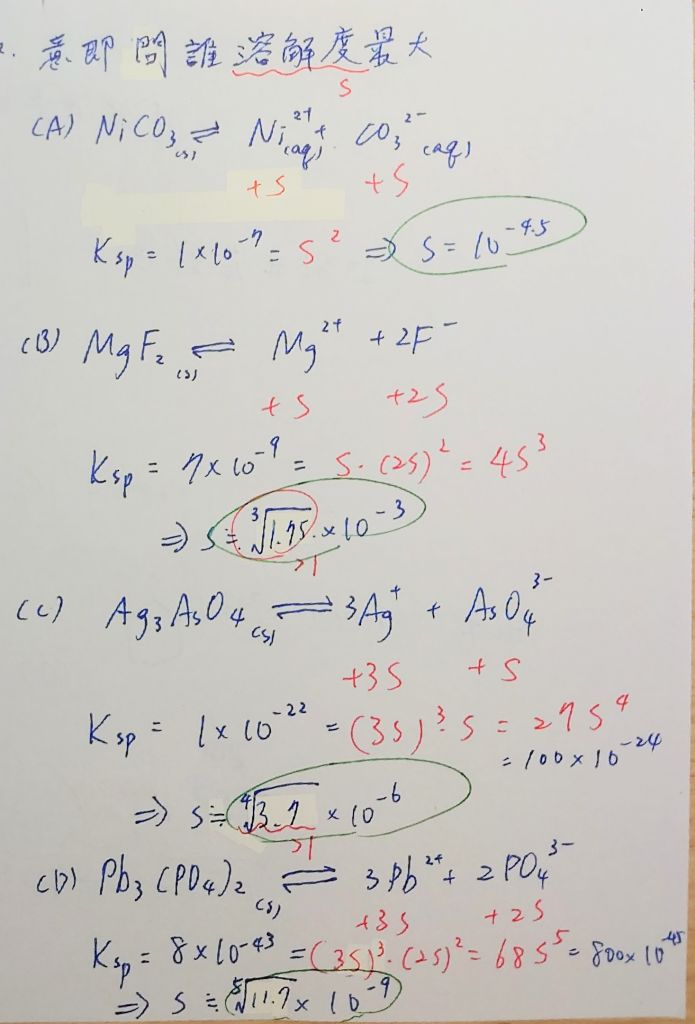 2. 意即問誰溶解度最大
S
(A) NiCO₃(s) ⇌ Ni²⁺(aq) + CO₃²⁻(aq)
+S +S
Ksp = 1×10⁻⁷ = S² ⇒ S = 10⁻⁴·⁵
(B) MgF₂(s) ⇌ Mg²⁺ + 2F⁻
+S +2S
Ksp = 7×10⁻⁹ = S·(2S)² = 4S³
⇒ S ≒ ³√1.75 × 10⁻³
>1
(C) Ag₃AsO₄(s) ⇌ 3Ag⁺ + AsO₄³⁻
+3S +S
Ksp = 1×10⁻²² = (3S)³·S = 27S⁴
= 100×10⁻²⁴
⇒ S ≒ ⁴√3.7 × 10⁻⁶
>1
(D) Pb₃(PO₄)₂(s) ⇌ 3Pb²⁺ + 2PO₄³⁻
+3S +2S
Ksp = 8×10⁻⁴³ = (3S)³·(2S)² = 68S⁵ = 800×10⁻⁴⁵
⇒ S ≒ ⁵√11.7 × 10⁻⁹